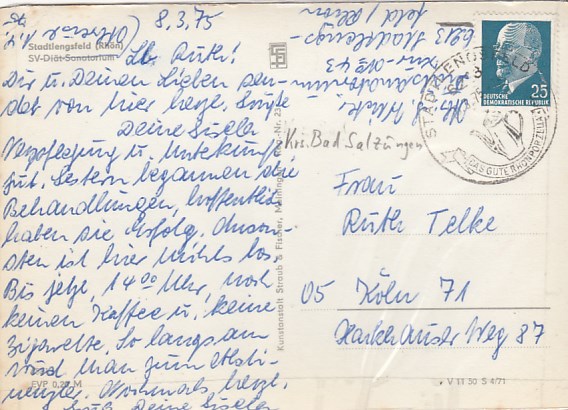 8.3.75
Stadtlengsfeld (Rhön)
SV-Diät-Sanatorium
Lb. Ruth!
Dir u. Deinen Lieben sen-
det von hier herzl. Grüße
Deine Gisela
Verpflegung u. Unterkunft
gut. Gestern begannen die
Behandlungen, hoffentlich
haben sie Erfolg. Anson-
sten ist hier nichts los.
Bis jetzt, 14⁰⁰ Uhr, noch
keinen Kaffee u. keine
Zigarette. So langsam
wird man zum Absti-
nenzler. Nochmals herzl.
Gruß Deine Gisela
EVP 0,20 M
Sanatorium
6213 Stadtlengs-
feld/Rhön
Kunstanstalt Straub & Fischer, Meiningen
Krs. Bad Salzungen
DEUTSCHE
DEMOKRATISCHE REPUBLIK
25
STADTLENGSFELD
DAS GUTE RHÖNPORZELLAN
Frau
Ruth Telke
05 Köln 71
Harkhauser Weg 87
V 11 50 S 4/71